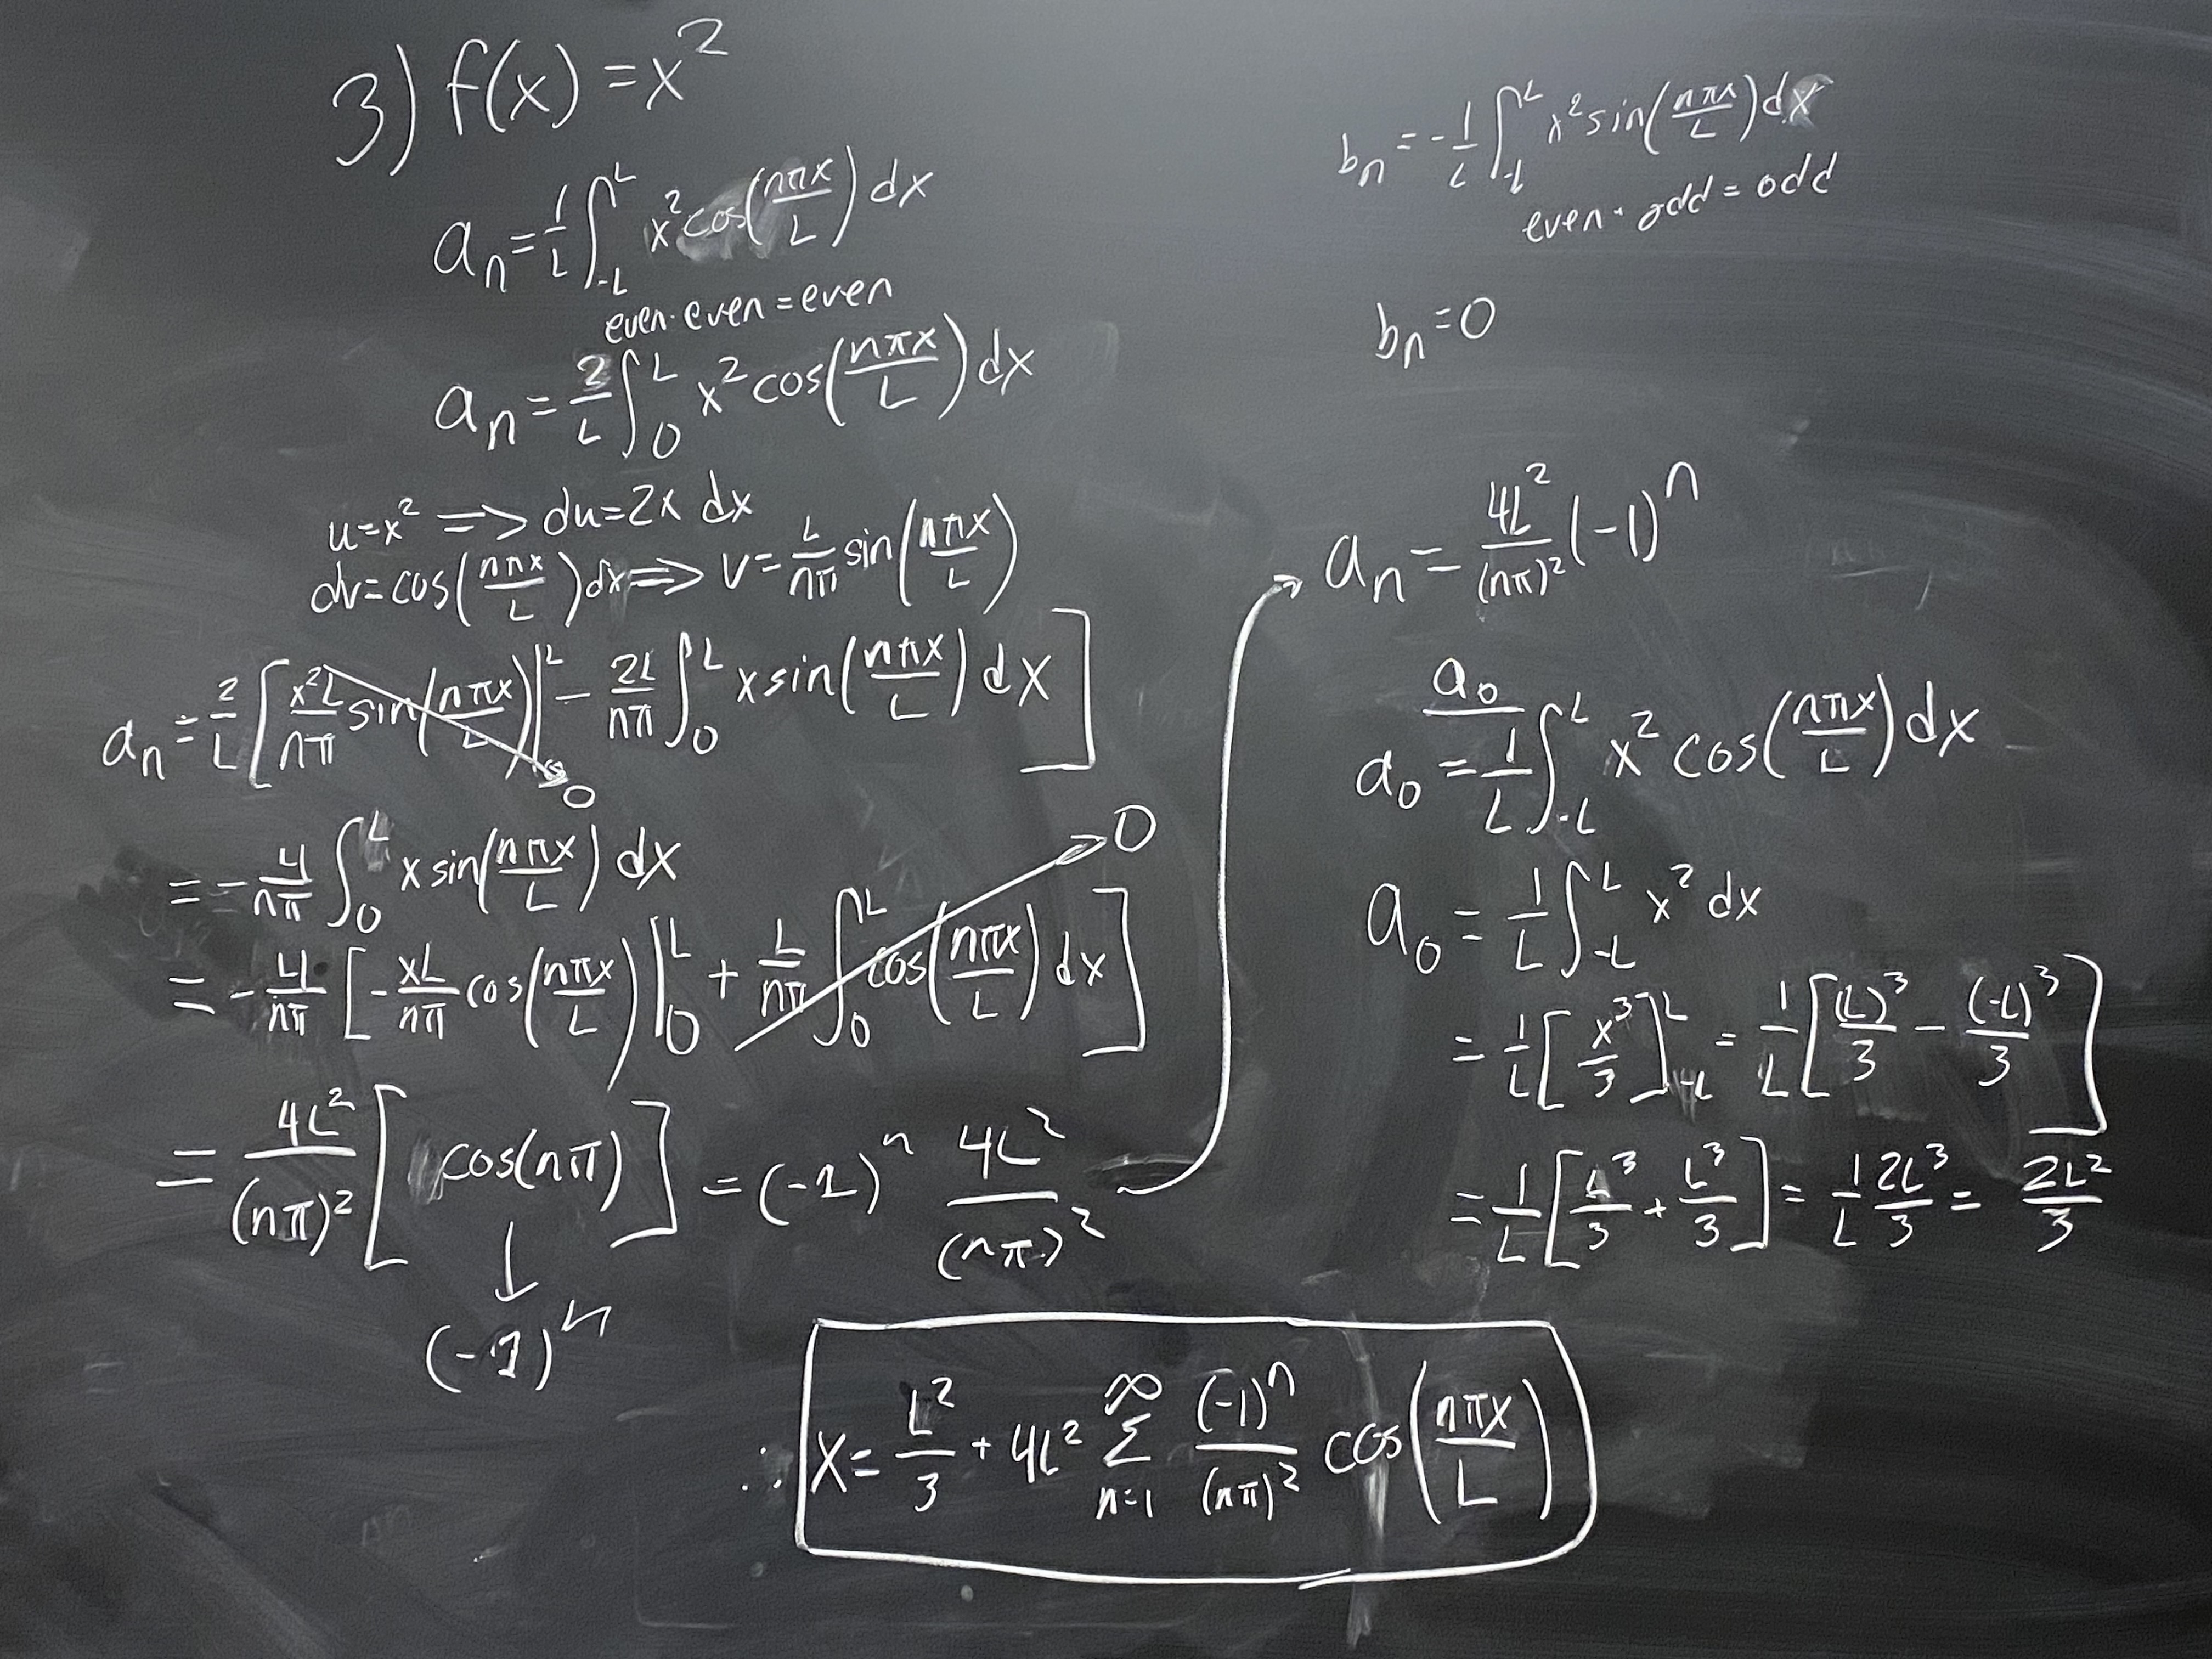 3) f(x) = x²
aₙ = 1/L ∫_{-L}^{L} x² cos(nπx/L) dx
even · even = even
aₙ = 2/L ∫_0^L x² cos(nπx/L) dx
u = x² ⟹ du = 2x dx
dv = cos(nπx/L) dx ⟹ v = L/nπ sin(nπx/L)
aₙ = 2/L [ x²L/nπ sin(nπx/L) |_0^L → 0 - 2L/nπ ∫_0^L x sin(nπx/L) dx ]
= - 4/nπ ∫_0^L x sin(nπx/L) dx
= - 4/nπ [ - xL/nπ cos(nπx/L) |_0^L + L/nπ ∫_0^L cos(nπx/L) dx → 0 ]
= 4L²/(nπ)² [ cos(nπ) ] = (-1)ⁿ 4L²/(nπ)² →
↓
(-1)ⁿ
bₙ = - 1/L ∫_{-L}^{L} x² sin(nπx/L) dx
even · odd = odd
bₙ = 0
aₙ = 4L²/(nπ)² (-1)ⁿ
a₀
a₀ = 1/L ∫_{-L}^{L} x² cos(nπx/L) dx
a₀ = 1/L ∫_{-L}^{L} x² dx
= 1/L [ x³/3 ]_{-L}^{L} = 1/L [ (L)³/3 - (-L)³/3 ]
= 1/L [ L³/3 + L³/3 ] = 1/L 2L³/3 = 2L²/3
∴ x = L²/3 + 4L² ∑_{n=1}^{∞} (-1)ⁿ/(nπ)² cos(nπx/L)